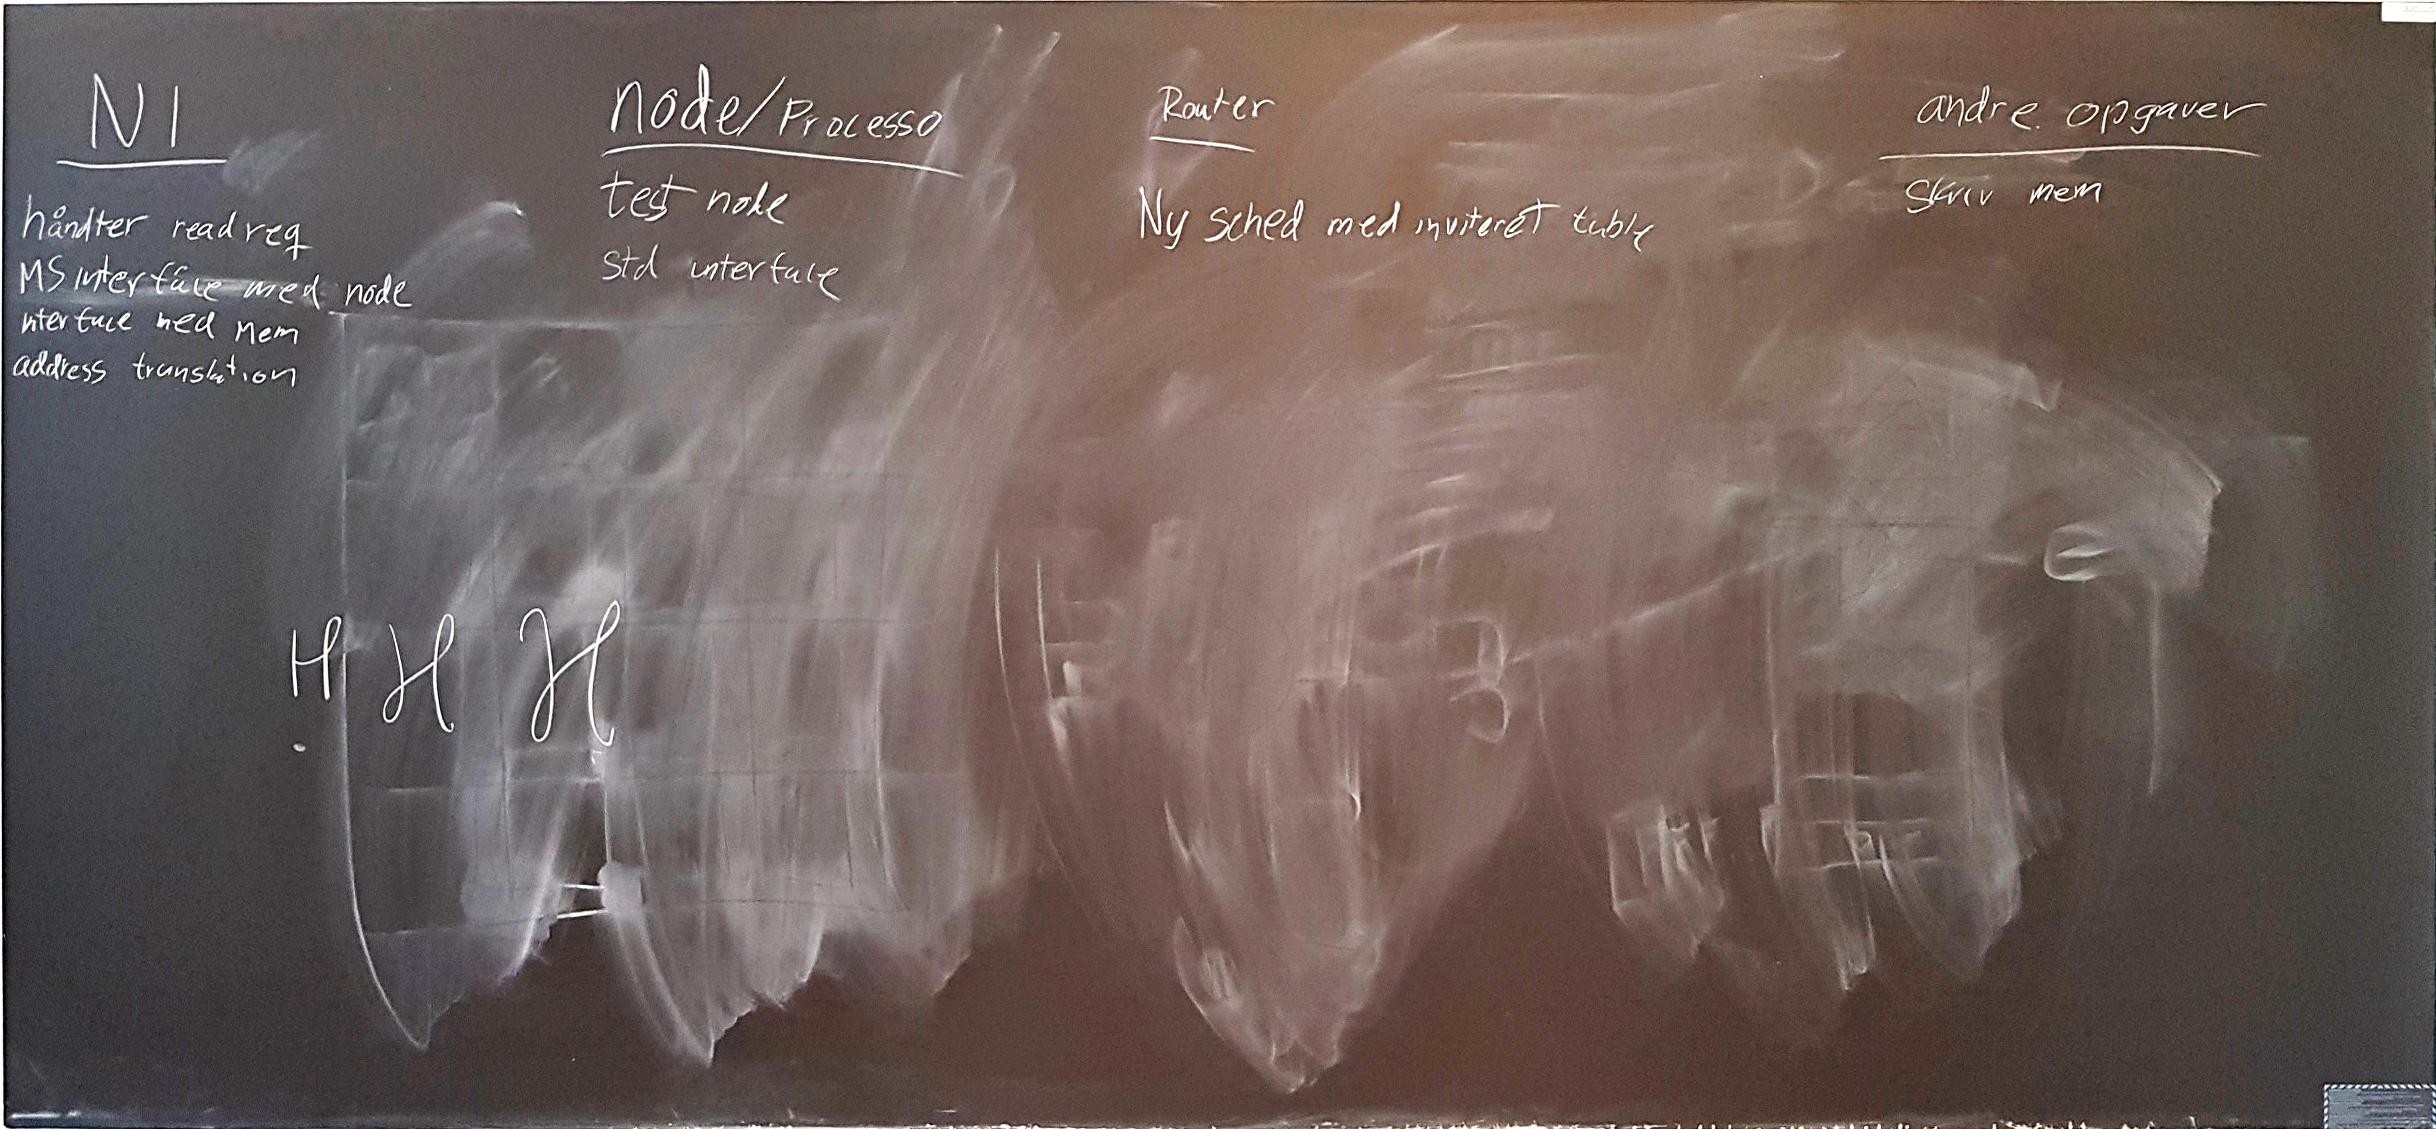 NI
håndter read req
MS interface med node
nterface med Mem
address translation
node/Processo
test node
std interface
Router
Ny sched med inviteret table
andre opgaver
Skriv mem
H H H